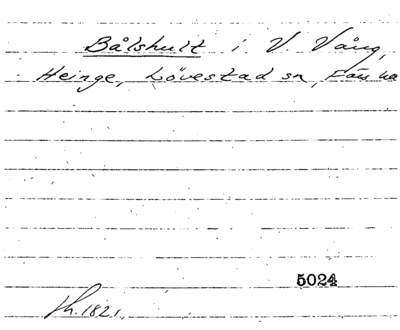 Bålshult i V. Vång,
Heinge, Lövestad sn, Färs hd
5024
Sk. 1821.